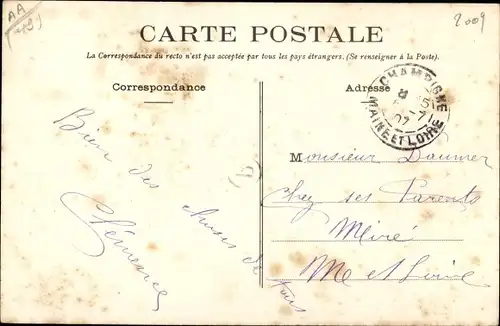 AA
2009
CARTE POSTALE
La Correspondance du recto n'est pas acceptée par tous les pays étrangers. (Se renseigner à la Poste).
Correspondance
Adresse
CHAMPIGNÉ
MAINE ET LOIRE
Bien des choses de tous
Clémence
Monsieur Daumer
Chez ses Parents
Miré
Me et Loire